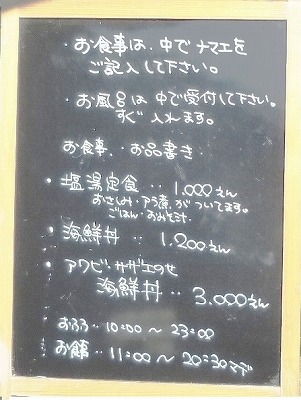 ・お食事は、中でナマエを
ご記入して下さい。
・お風呂は中で受付して下さい。
すぐ入れます。
お食事、お品書き
・塩湯定食‥1,000えん
おさしみ・アラ煮、がついてます。
ごはん・おみそ汁
・海鮮丼‥1,200えん
・アワビ・サザエのせ
海鮮丼‥3,000えん
・おふろ‥10:00〜23:00
・お食事‥11:00〜20:30マデ